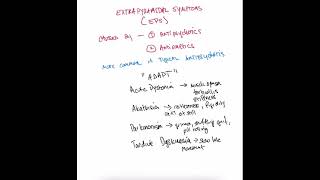 EXTRAPYRAMIDAL SYMPTOMS
(EPS)
CAUSED BY - ① ANTIPSYCHOTICS
② ANTIEMETICS
MORE COMMON IN TYPICAL ANTIPSYCHOTICS
"ADAPT"
Acute Dystonia → muscle spasm
torticollis
Akathisia → restlessness, fidgeting
can't sit still
Parkinsonism → tremor, shuffling gait,
pill rolling
Tardive Dyskinesia →
movement